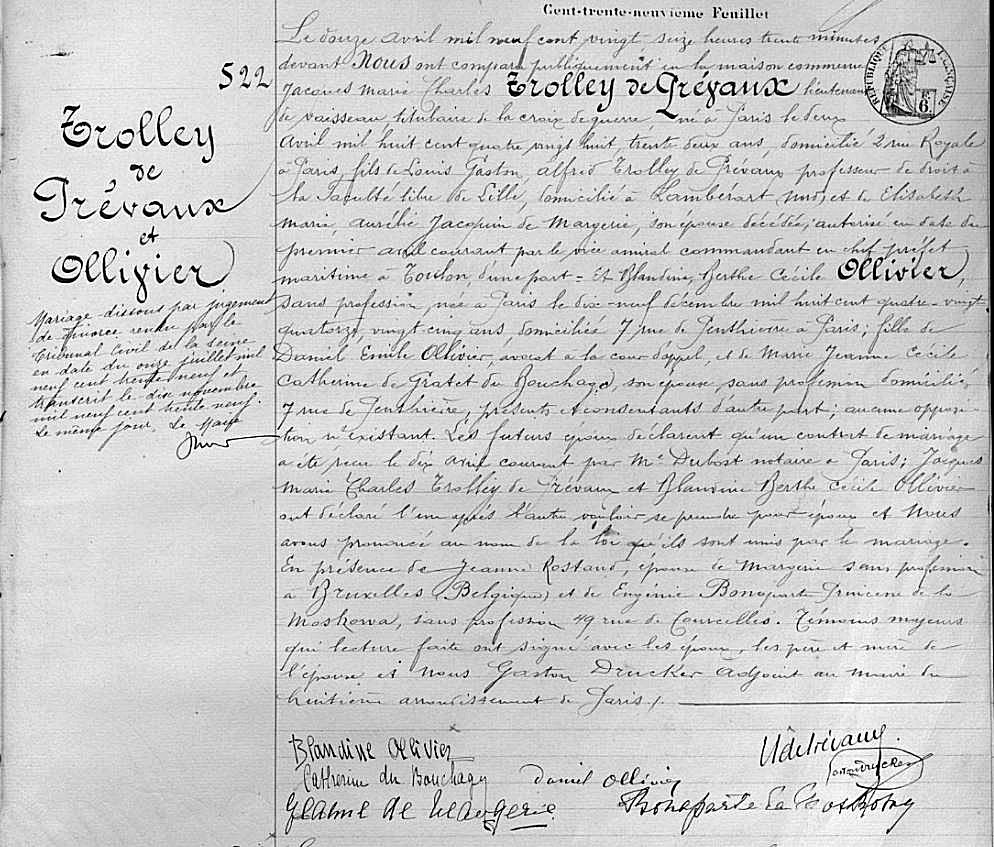 Cent-trente-neuvième Feuillet
522
Trolley
de
Prévaux
et
Ollivier
Mariage dissous par jugement
de divorce rendu par le
Tribunal Civil de la Seine
en date du onze juillet mil
neuf cent trente neuf et
transcrit le dix novembre
mil neuf cent trente neuf.
Le même jour, Le Maire
Le douze avril mil neuf cent vingt seize heures trente minutes
devant Nous ont comparu publiquement en la maison commune
Jacques Marie Charles Trolley de Prévaux lieutenant
de vaisseau titulaire de la croix de guerre né à Paris le deux
Avril mil huit cent quatre vingt huit, trente deux ans, domicilié 2 rue Royale
à Paris, fils de Louis Gaston, alfred Trolley de Prévaux professeur de droit à
la Faculté libre de Lille, domicilié à Lambersart (Nord) et de Elisabeth
Marie, aurélie Jacquin de Margerie, son épouse décédée, autorisé en date du
premier avril courant par le vice amiral commandant en chef préfet
maritime à Toulon, d'une part - Et Blandine, Berthe Cécile Ollivier,
sans profession, née à Paris le dix-neuf décembre mil huit cent quatre-vingt
quatorze, vingt cinq ans, domiciliée 7 rue de Penthièvre à Paris; fille de
Daniel Emile Ollivier, avocat à la cour d'appel, et de Marie Jeanne Cécile
Catherine de Gratet du Bouchage, son épouse sans profession domiciliés
7 rue de Penthièvre, présents et consentants d'autre part; aucune opposi-
tion n'existant. Les futurs époux déclarent qu'un contrat de mariage
a été reçu le dix avril courant par Me Dubost notaire à Paris; Jacques
Marie Charles Trolley de Prévaux et Blandine Berthe Cécile Ollivier
ont déclaré l'un après l'autre vouloir se prendre pour époux et Nous
avons prononcé au nom de la loi qu'ils sont unis par le mariage.
En présence de Jeanne Rostand, épouse de Margerie sans profession
à Bruxelles (Belgique) et de Eugénie Bonaparte Princesse de la
Moskowa, sans profession 49 rue de Courcelles. Témoins majeurs
qui lecture faite ont signé avec les époux, les père et mère de
l'épouse et Nous Gaston Drucker adjoint au maire du
huitième arrondissement de Paris./.
Blandine Ollivier
Catherine du Bouchage Daniel Ollivier
de Margerie Bonaparte La Moskowa
RÉPUBLIQUE FRANÇAISE
6